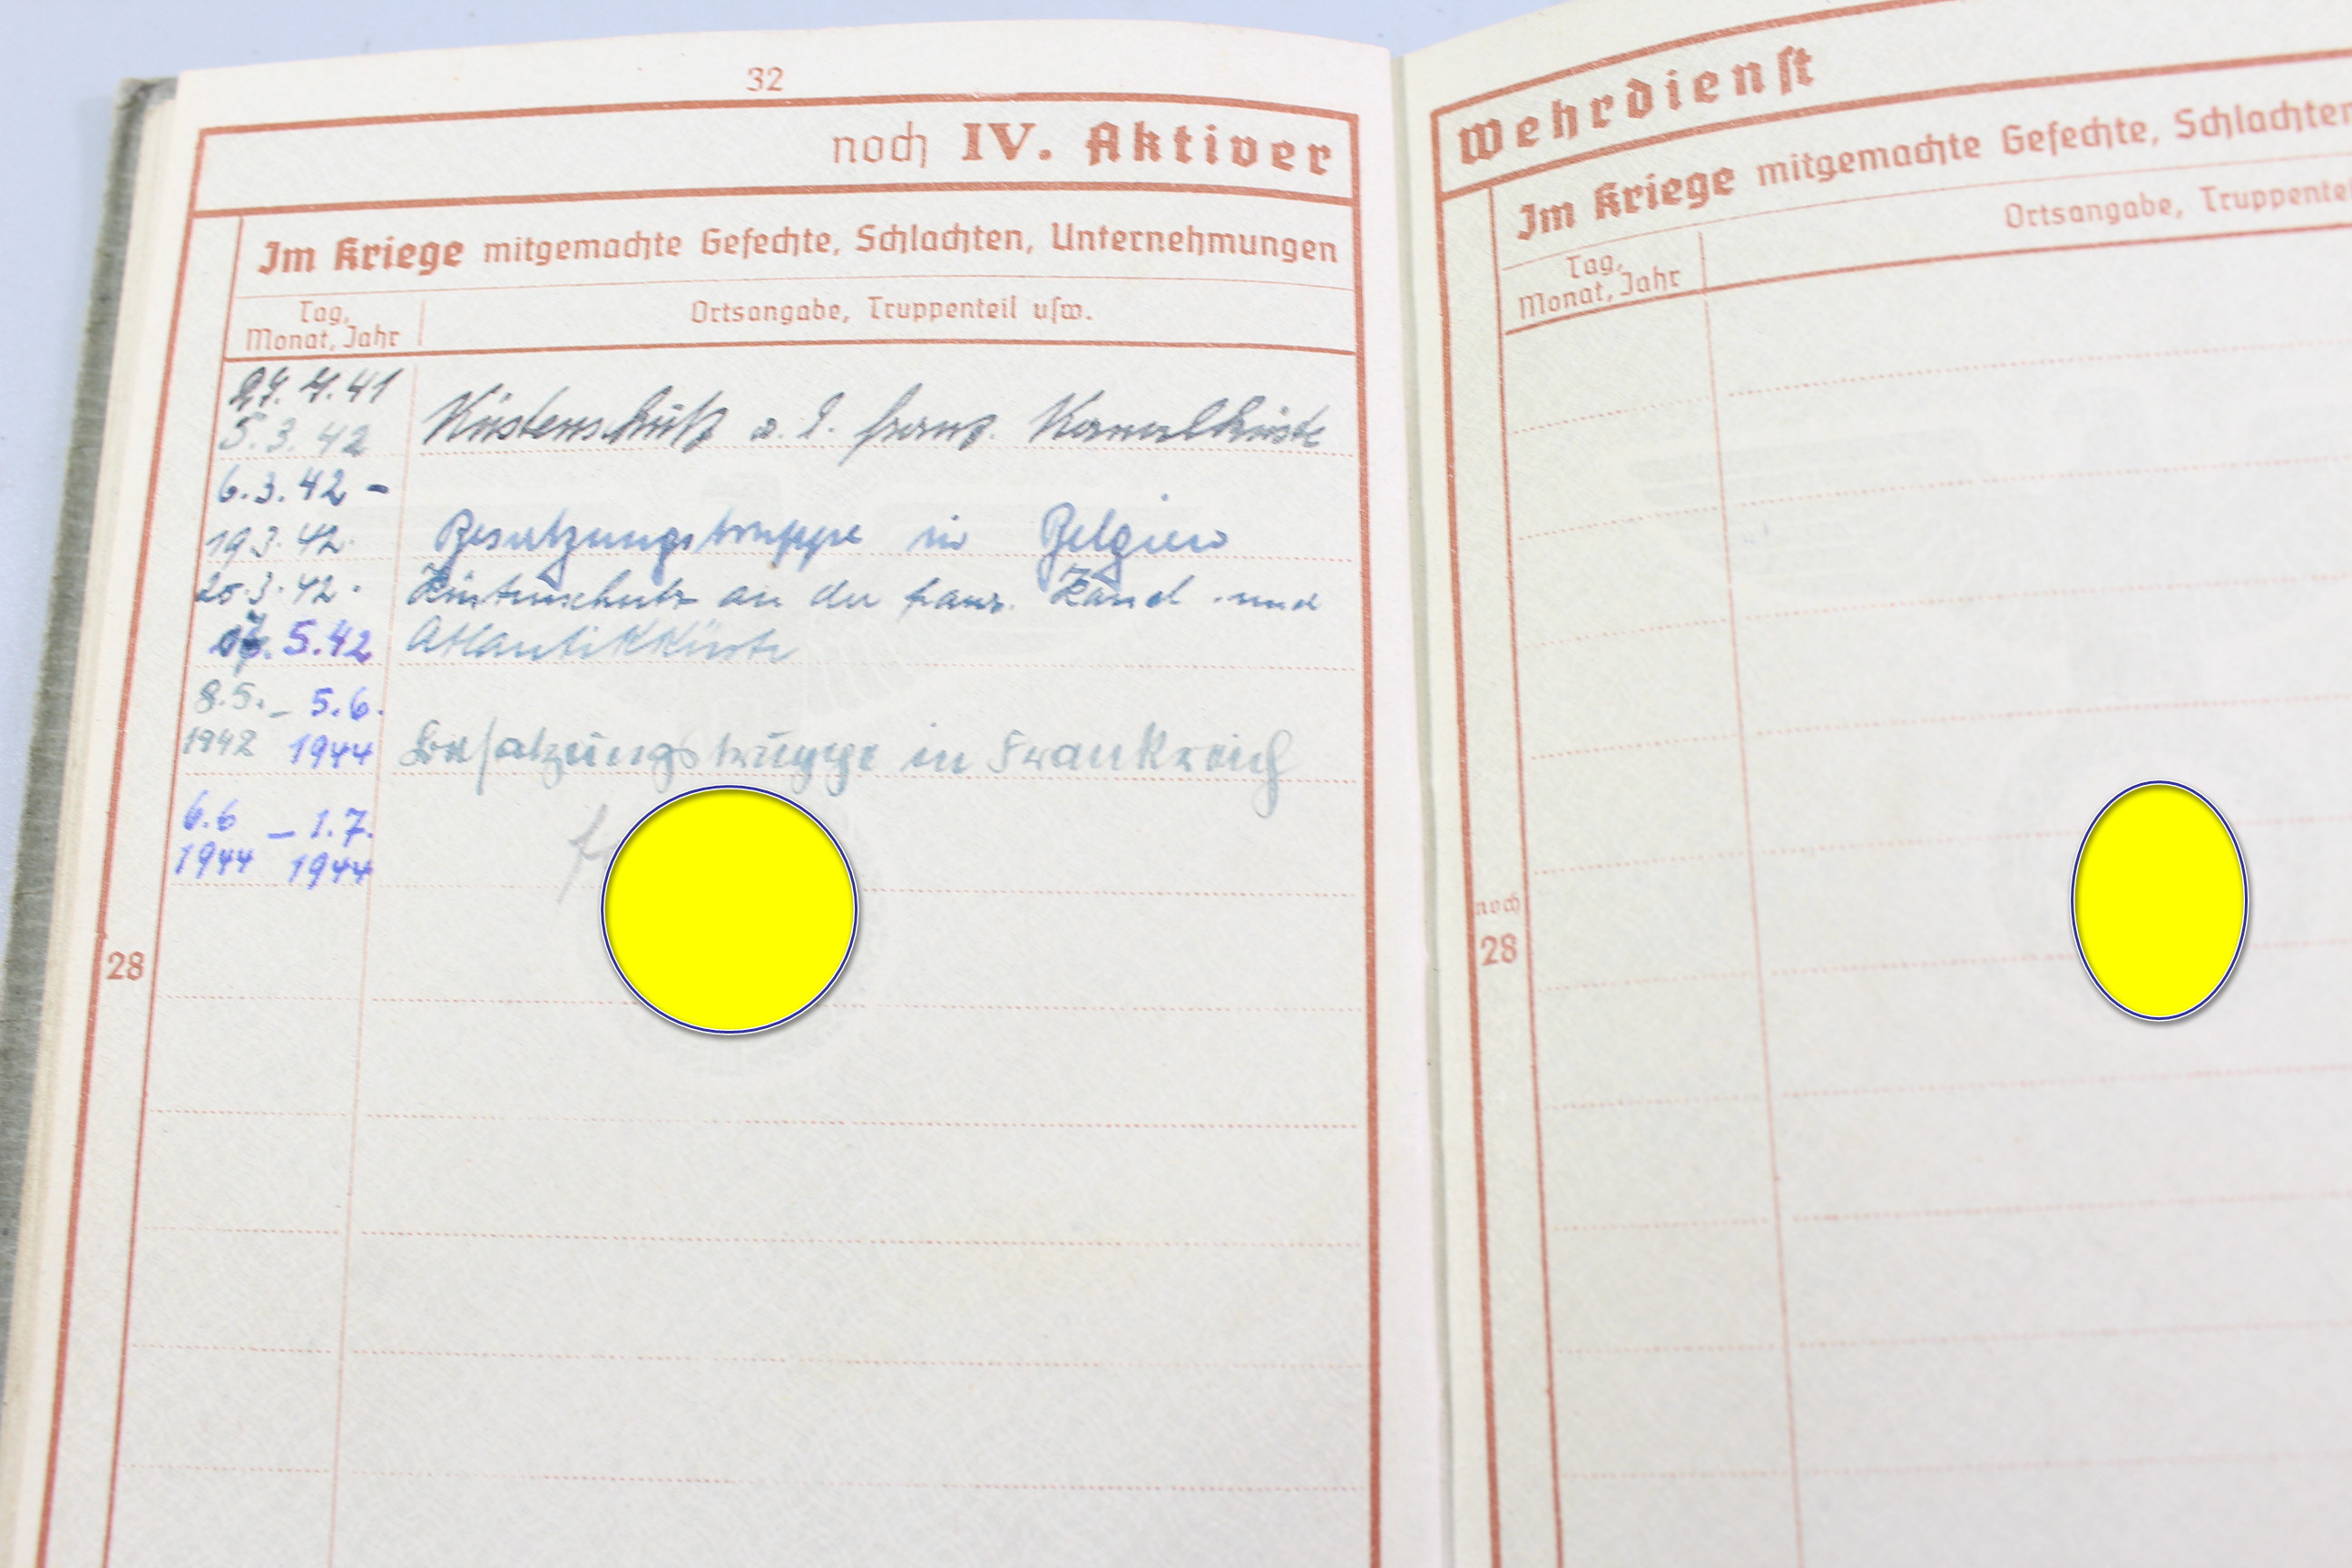 32
noch IV. Aktiver
Im Kriege mitgemachte Gefechte, Schlachten, Unternehmungen
Tag,
Monat, Jahr
Ortsangabe, Truppenteil usw.
4.41
5.3.42
Küstenschutz a. d. franz. Kanalküste
6.3.42 -
19.3.42. Besatzungstruppe in Belgien
20.3.42. Küstenschutz an der franz. Kanal- und
5.42 Atlantikküste
8.5. - 5.6.
1942 1944 Besatzungstruppe in Frankreich
6.6 - 1.7.
1944 1944
28
Wehrdienst
Im Kriege mitgemachte Gefechte, Schlachten
Ortsangabe,
Tag,
Monat, Jahr
noch
28